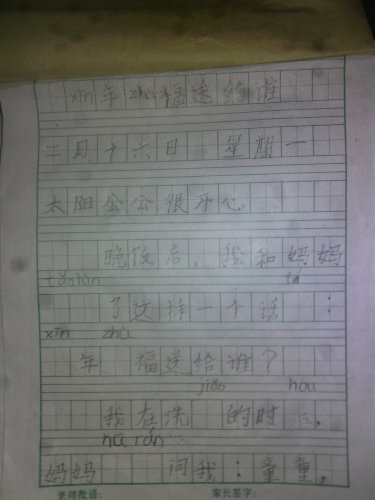 xīn年zhù福送给谁
二月十六日 星期一
太阳公公很开心
晚饭后，我和妈妈
tǎnlùn tí
了这样一个话：
xīn zhù
年 福送给谁？
jiǎo hou
我在洗 的时，
hū rán
妈妈 问我：童童，
老师批语： 家长签字：